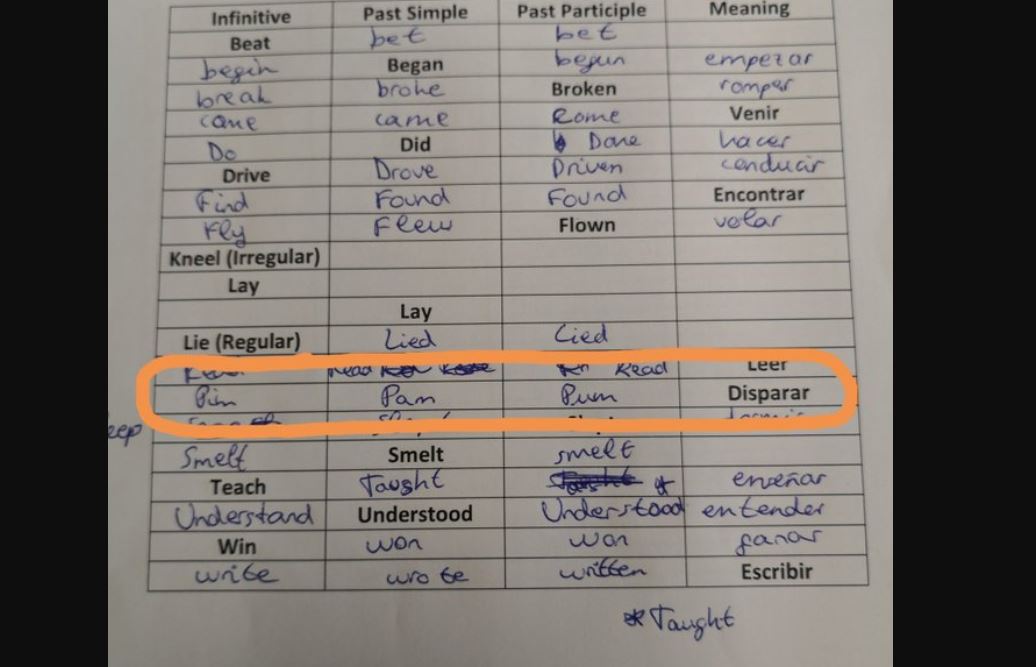 Infinitive Past Simple Past Participle Meaning
Beat bet bet
begin Began begun empezar
break broke Broken romper
came came Come Venir
Do Did Done hacer
Drive Drove Driven conducir
Find Found Found Encontrar
Fly Flew Flown volar
Kneel (Irregular)
Lay
Lay
Lie (Regular) Lied Lied
Read Read Leer
Pim Pam Pum Disparar
eep
Smelt Smelt smelt
Teach Taught * enseñar
Understand Understood Understood entender
Win won won ganar
write wrote written Escribir
* Taught